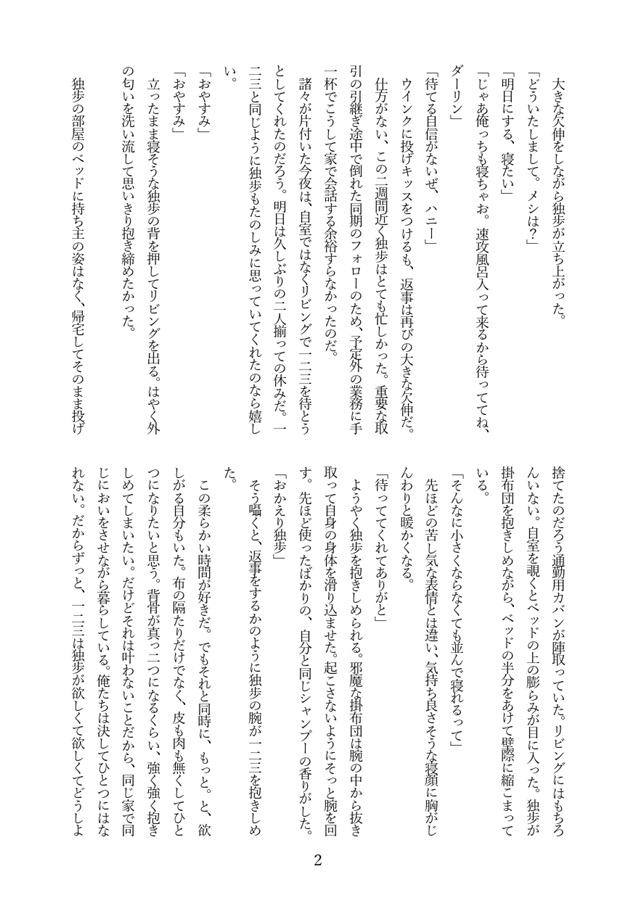 大きな欠伸をしながら独歩が立ち上がった。
「どういたしまして。メシは？」
「明日にする、寝たい」
「じゃあ俺っちも寝ちゃお。速攻風呂入って来るから待っててね、
ダーリン」
「待てる自信がないぜ、ハニー」
ウインクに投げキッスをつけるも、返事は再びの大きな欠伸だ。
仕方がない、この二週間近く独歩はとても忙しかった。重要な取
引の引継ぎ途中で倒れた同期のフォローのため、予定外の業務に手
一杯でこうして家で会話する余裕すらなかったのだ。
諸々が片付いた今夜は、自室ではなくリビングで一二三を待とう
としてくれたのだろう。明日は久しぶりの二人揃っての休みだ。一
二三と同じように独歩もたのしみに思っていてくれたのなら嬉し
い。
「おやすみ」
「おやすみ」
立ったまま寝そうな独歩の背を押してリビングを出る。はやく外
の匂いを洗い流して思いきり抱き締めたかった。
独歩の部屋のベッドに持ち主の姿はなく、帰宅してそのまま投げ
捨てたのだろう通勤用カバンが陣取っていた。リビングにはもちろ
んいない。自室を覗くとベッドの上の膨らみが目に入った。独歩が
掛布団を抱きしめながら、ベッドの半分をあけて壁際に縮こまって
いる。
「そんなに小さくならなくても並んで寝れるって」
先ほどの苦し気な表情とは違い、気持ち良さそうな寝顔に胸がじ
んわりと暖かくなる。
「待っててくれてありがと」
ようやく独歩を抱きしめられる。邪魔な掛布団は腕の中から抜き
取って自身の身体を滑り込ませた。起こさないようにそっと腕を回
す。先ほど使ったばかりの、自分と同じシャンプーの香りがした。
「おかえり独歩」
そう囁くと、返事をするかのように独歩の腕が一二三を抱きしめ
た。
この柔らかい時間が好きだ。でもそれと同時に、もっと。と、欲
しがる自分もいた。布の隔たりだけでなく、皮も肉も無くしてひと
つになりたいと思う。背骨が真っ二つになるくらい、強く強く抱き
しめてしまいたい。だけどそれは叶わないことだから、同じ家で同
じにおいをさせながら暮らしている。俺たちは決してひとつにはな
れない。だからずっと、一二三は独歩が欲しくて欲しくてどうしよ
2